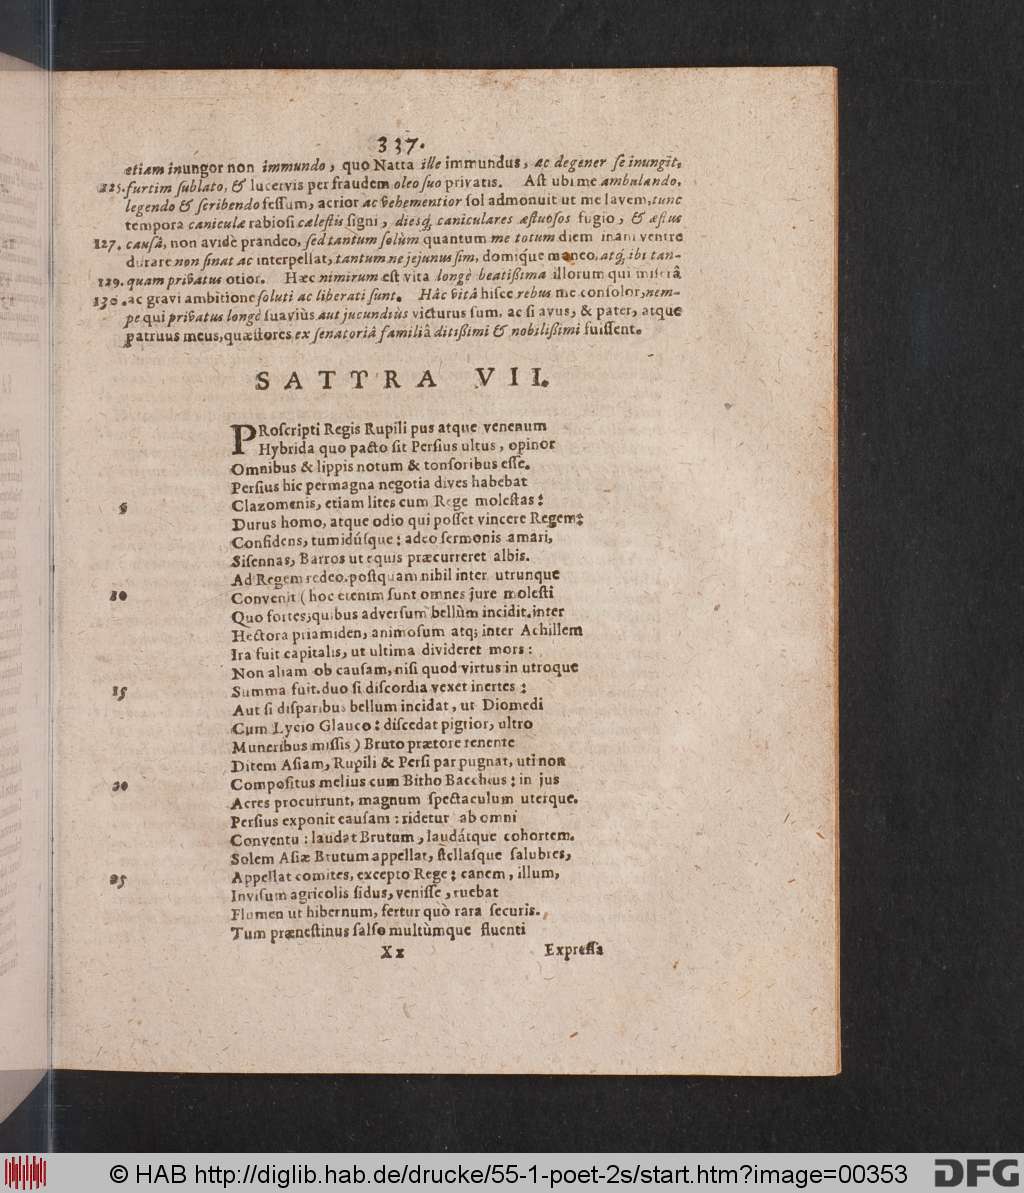 337.
etiam inungor non immundo, quo Natta ille immundus, ac degener se inungit.
125. furtim sublato, & lucervis per fraudem oleo suo privatis. Ast ubi me ambulando,
legendo & scribendo fessum, acrior ac vehementior sol admonuit ut me lavem, tunc
tempora caniculæ rabiosi cælestis signi, diesq́; caniculares æstuosos fugio, & æstus
127. causâ, non avidè prandeo, sed tantum solùm quantum me totum diem inani ventre
durare non sinat ac interpellat, tantum ne jejunus sim, domíque maneo, atq́; ibi tan-
129. quam privatus otior. Hæc nimirum est vita longè beatißima illorum qui miserâ
130. ac gravi ambitione soluti ac liberati sunt. Hâc vitâ hisce rebus me consolor, nem-
pe qui privatus longè suaviùs aut jucundiùs victurus sum, ac si avus, & pater, atque
patruus meus, quæstores ex senatoriâ familiâ ditißimi & nobilißimi fuissent.
SATYRA VII.
PRoscripti Regis Rupili pus atque venenum
Hybrida quo pacto sit Persius ultus, opinor
Omnibus & lippis notum & tonsoribus esse.
Persius hic permagna negotia dives habebat
5 Clazomenis, etiam lites cum Rege molestas:
Durus homo, atque odio qui posset vincere Regem:
Confidens, tumidúsque: adeo sermonis amari,
Sisennas, Barros ut equis præcurreret albis.
Ad Regem redeo. postquam nihil inter utrunque
10 Convenit (hoc etenim sunt omnes jure molesti
Quo fortes; quibus adversum bellùm incidit. inter
Hectora priamiden, animosum atq; inter Achillem
Ira fuit capitalis, ut ultima divideret mors:
Non aliam ob causam, nisi quod virtus in utroque
15 Summa fuit. duo si discordia vexet inertes:
Aut si disparibus bellum incidat, ut Diomedi
Cum Lycio Glauco: discedat pigrior, ultro
Muneribus missis) Bruto prætore tenente
Ditem Asiam, Rupili & Persi par pugnat, uti non
20 Compositus melius cum Bitho Baccheus: in jus
Acres procurrunt, magnum spectaculum uterque.
Persius exponit causam: ridetur ab omni
Conventu: laudat Brutum, laudátque cohortem.
Solem Asiæ Brutum appellat, stellasque salubres,
25 Appellat comites, excepto Rege: canem, illum,
Invisum agricolis sidus, venisse, ruebat
Flumen ut hibernum, fertur quò rara securis.
Tum prænestinus salso multùmque fluenti
Xx Expressa
© HAB http://diglib.hab.de/drucke/55-1-poet-2s/start.htm?image=00353
DFG